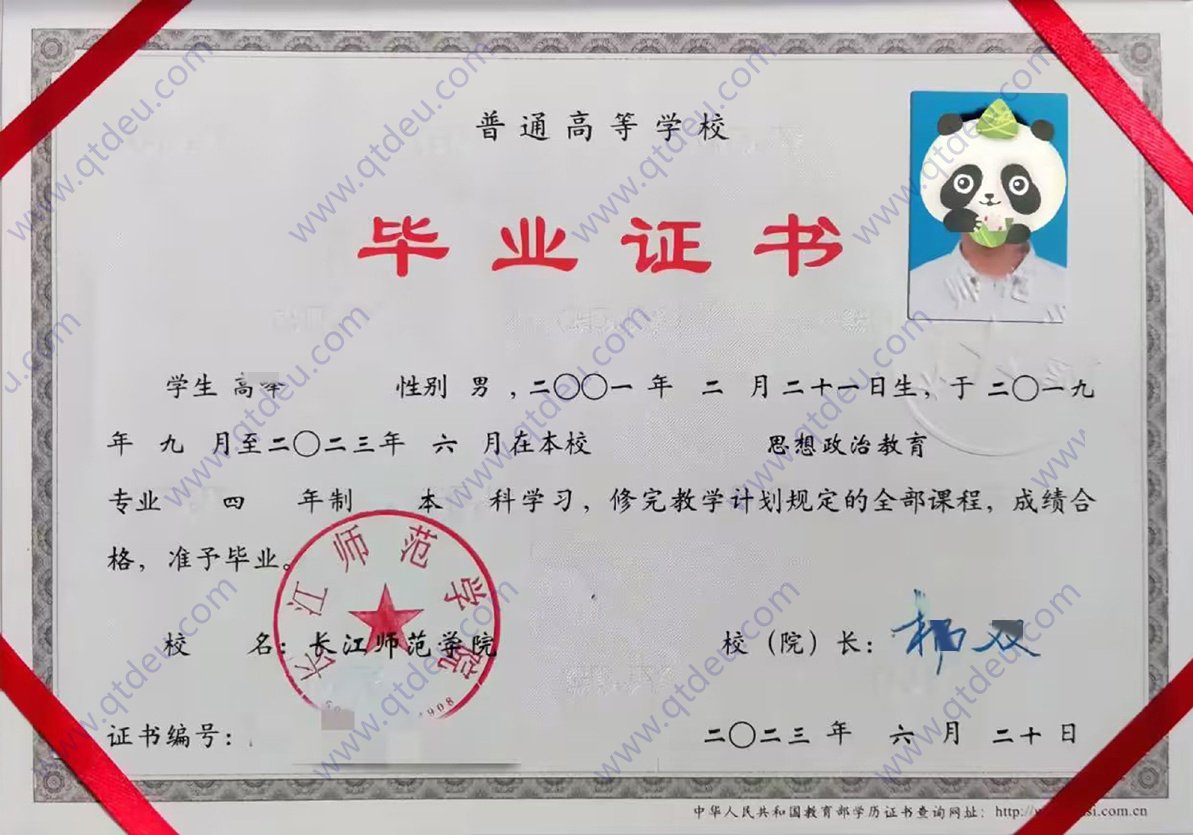 普通高等学校
毕业证书
学生 高 性别 男，二〇〇一年 二 月二十一日生，于二〇一九
年 九 月至二〇二三年 六 月在本校 思想政治教育
专业 四 年制 本 科学习，修完教学计划规定的全部课程，成绩合
格，准予毕业。
长江师范学院
校 名：长江师范学院 校（院）长：
证书编号： 二〇二三年 六 月 二十日
中华人民共和国教育部学历证书查询网址：http://
si.com.cn
师范
www.qtdeu.com